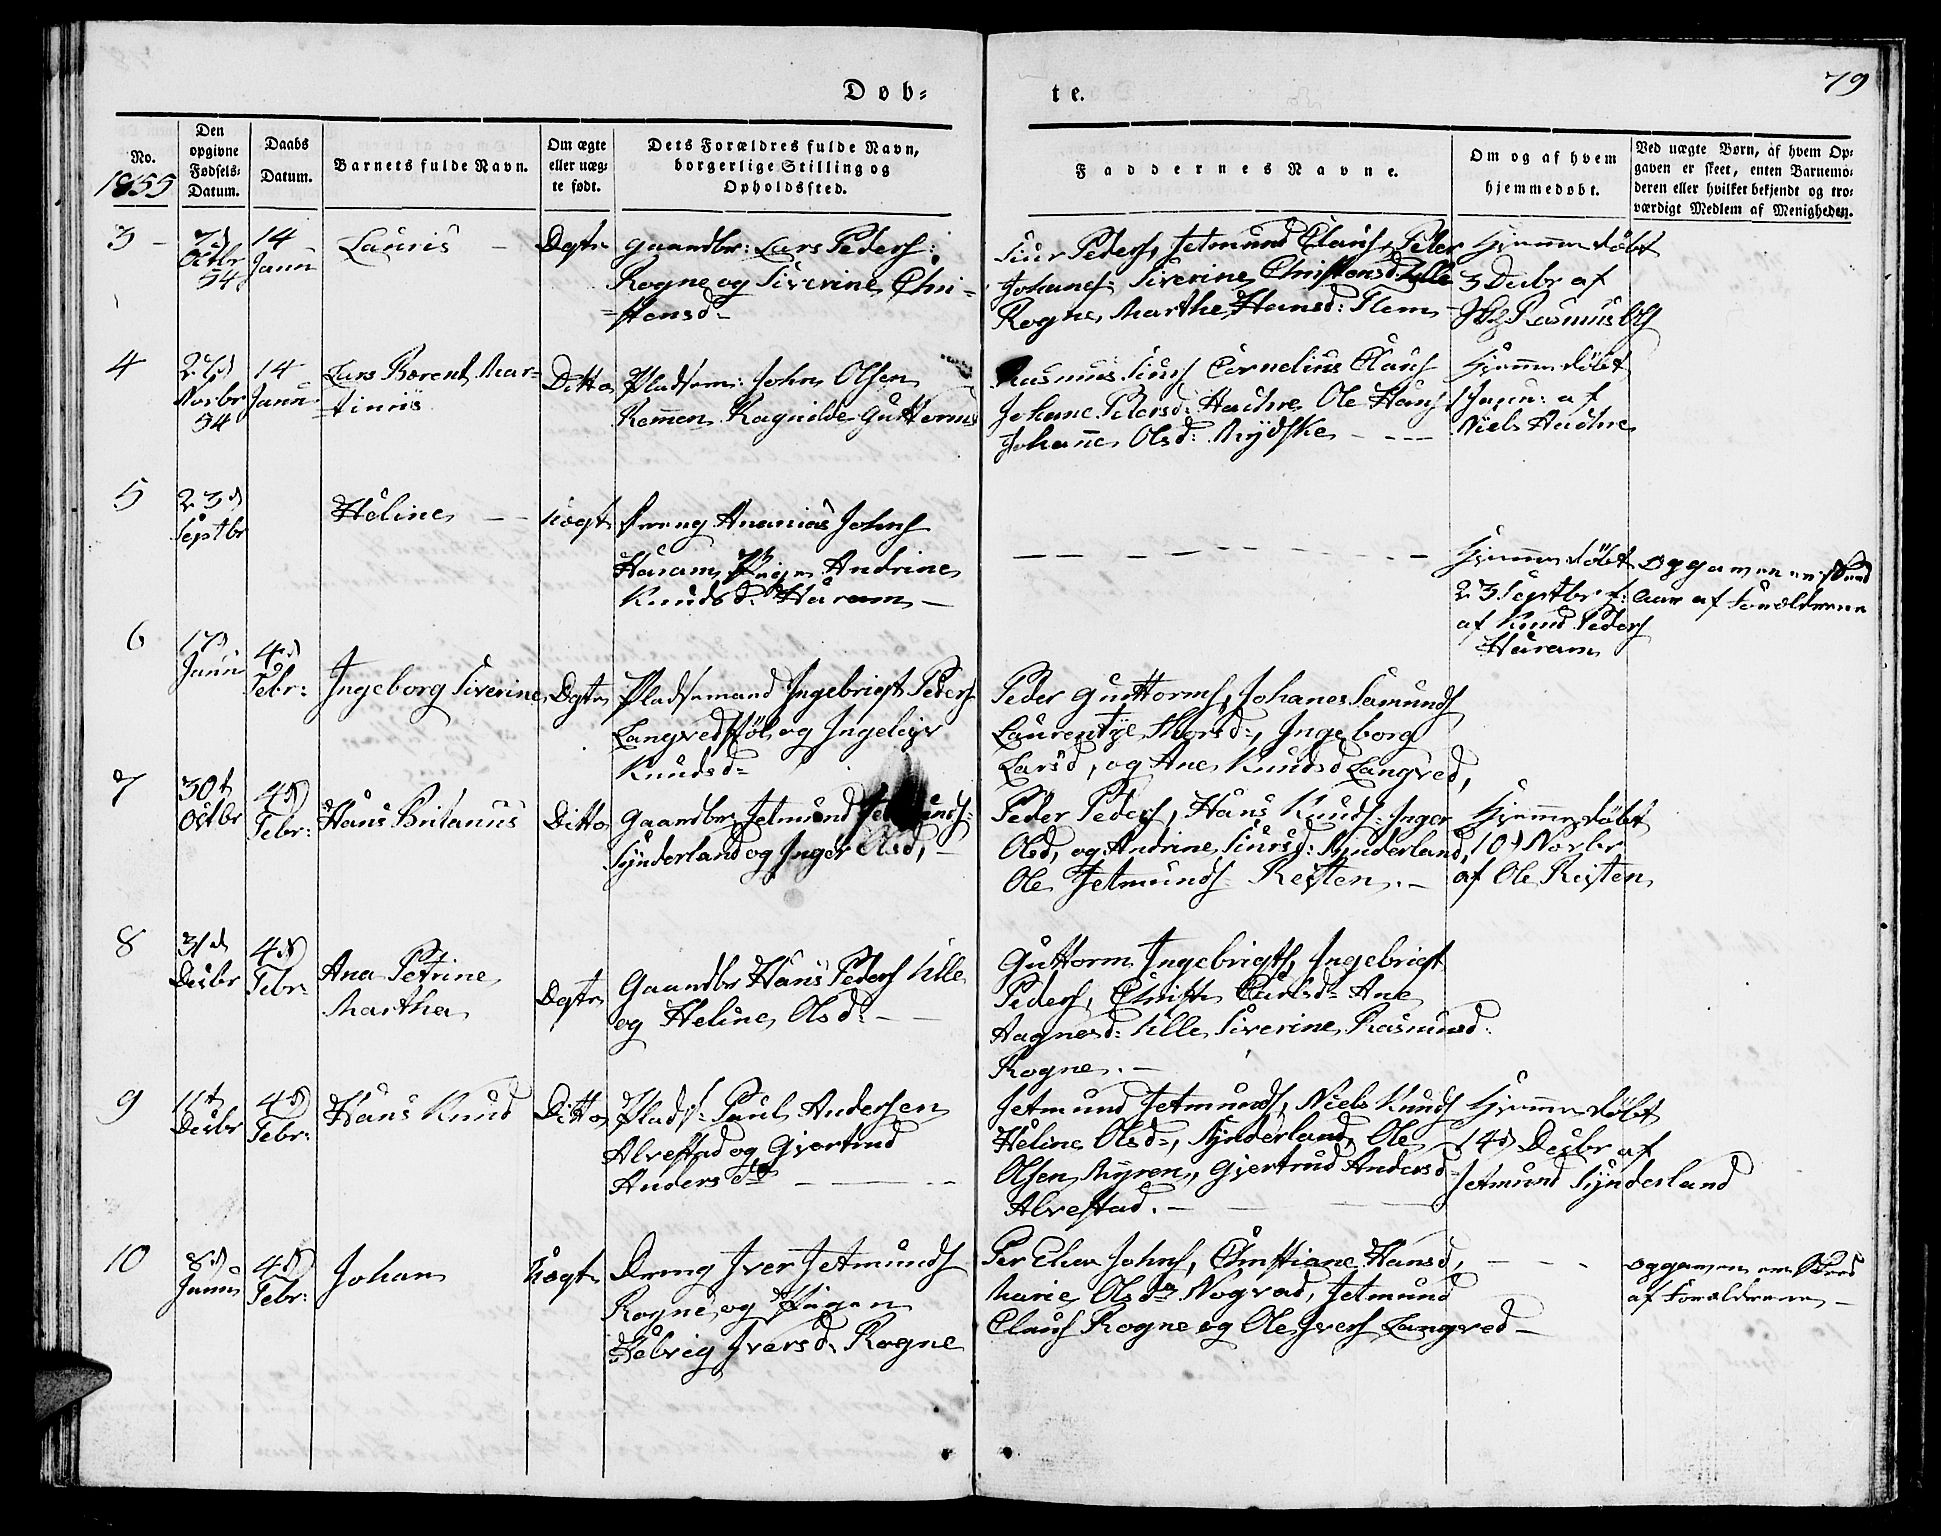 79
Døb-
te.
No.
1855
Den opgivne Fødsels-Datum.
Daabs Datum.
Barnets fulde Navn.
Om ægte eller uæg-te født.
Dets Forældres fulde Navn,
borgerlige Stilling og
Opholdssted.
Faddernes Navne.
Om og af hvem
hjemmedøbt.
Ved uægte Børn, af hvem Op-
gaven er skeet, enten Barnemo-
deren eller hvilket bekjendt og tro-
værdigt Medlem af Menigheden.
3
7d Octbr 54
14 Januu
Lauris
Øgte
Gaardbr: Lars Peders:
Rogne og Siverine Chri-
stensd
Siur Peders, Jetmund Claus, Peter
Johans: Siverine Christensd Ulle
Rogne, Marthe Hansd: Flem
Hjemmedøbt
3 Decbr af
Rasmus Ols
4
27d Novbr 54
14 Januu
Lars Berent Mar-
tinus
Ditto
Pladsem: John Olsen
Remmen Ragnilde Guttorms
Rasmus Siurs Cornelius Claus
Johane Petersd: Hauhre Ole Hans
Johanne Olsd:
Hjemmedøbt
1 Januu: af
Niels Hauhre
5
23d Septbr
Heline
Uægte
Dreng Ananias Johns
Haram Pigen Andrine
Knudsd: Haram
Hjemmedøbt
23 Septbr
af Knud Peders
Haram
Opgaven er
af Forældrene
6
17d Januu
4d Febr:
Ingeborg Siverine
Øgte
Pladsemand Ingebrigt Peders
Langvedstøl og Ingeleiv
Knudsd
Peder Guttorms, Johanes Samunds
Laurentze Thorsd:, Ingeborg
Larsd, og Ane Knudsd Langved,
7
30t Octbr
4d Febr:
Hans Britanus
Ditto
Gaardbr Jetmund Jetmunds:
Synderland og Inger Olsd,
Peder Peders, Hans Knuds: Inger
Olsd, og Andrine Siursd: Synderland,
Ole Jetmunds Reiten.
Hjemmedøbt
10d Novbr
af Ole Reiten
8
31d Decbr
4d Febr:
Ana Petrine
Martha
Øgte
Gaardbr Hans Peders Ulle
og Heline Olsd:
Guttorm Ingebrigts, Ingebrigt
Peders, Christi Carlsd Ane
Aagnesd: Ulle Siverine Rasmusd:
Rogne.
9
11t Decbr
4d Febr:
Hans Knud
Ditto
Plads: Paul Andersen
Alvestad og Gjertrud
Andersdt
Jetmund Jetmunds, Niels Knuds
Heline Olsd:, Synderland, Ole
Olsen Myren, Gjertrud Andersd
Alvestad.
Hjemmedøbt
14d Decbr af
Jetmund Synderland
10
8d Januu
4d Febr:
Johan
Uægte
Dreng Iver Jetmunds
Rogne, og Pigen
Helvig Iversd. Rogne
Per Elias Johns, Christiane Hansd,
Marie Olsd Nogvad, Jetmund
Claus Rogne og Ole Ivers Langved
Opgaven er
af Forældrene